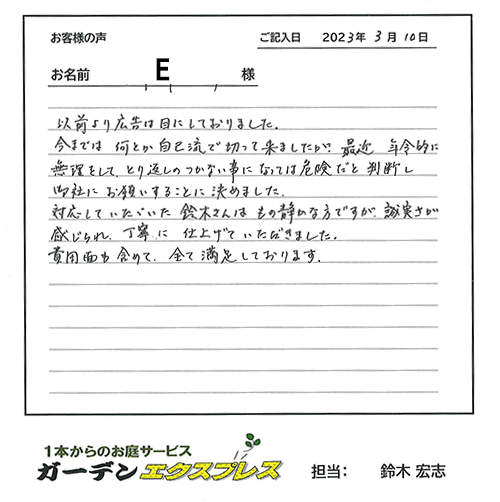 お客様の声
ご記入日 2023年 3月 10日
お名前 E 様
以前より広告は目にしておりました。
今までは 何とか自己流で切って来ましたが、最近 年令的に
無理をして、とり返しのつかない事になっては危険だと判断し
御社にお願いすることに決めました。
対応していただいた 鈴木さんは もの静かな方ですが、誠実さが
感じられ、丁寧に 仕上げていただきました。
費用面も含めて、全て満足しております。
1本からのお庭サービス
ガーデンエクスプレス
担当： 鈴木 宏志